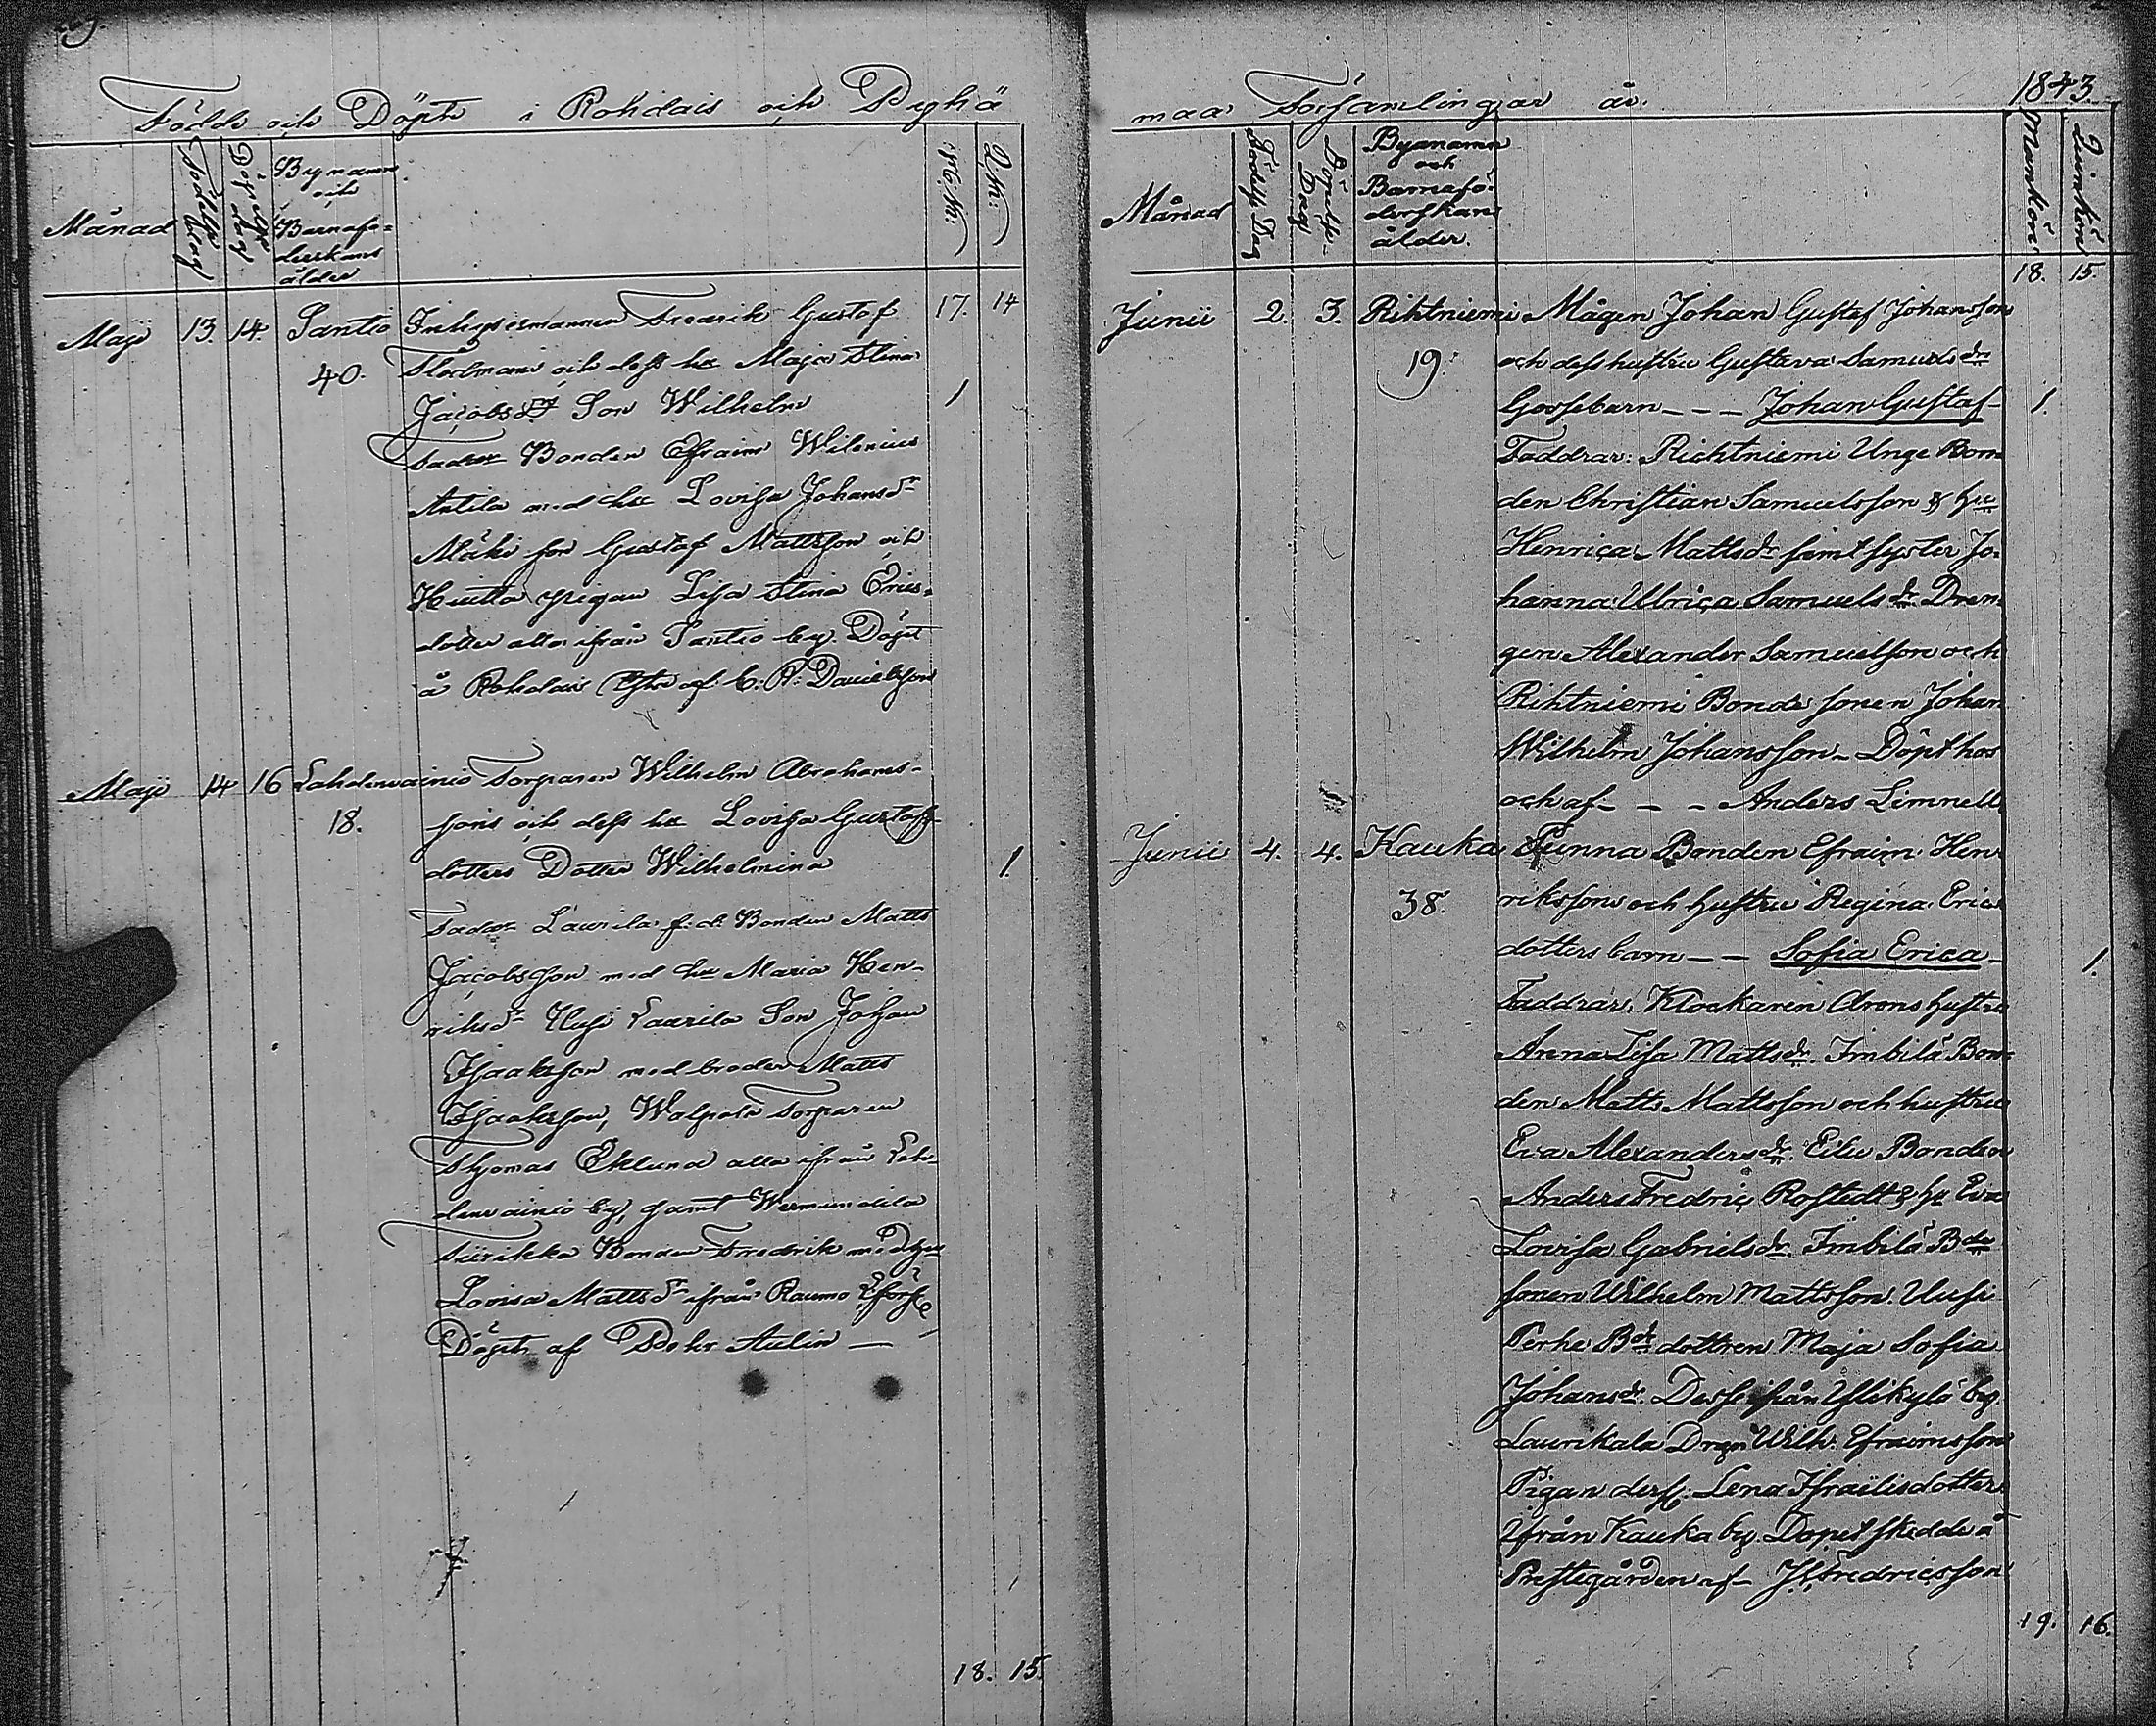 Födde och Döpte i Rohdais och Pyhä
Månad Födelse dag Döpelse dag Bynamn och Barnafö= derskans ålder M:k: Q:k:
17. 14
Maji 13. 14. Santio Fredrik Gustaf
40. och dess hu Maja Stina
Jacobs Dr Son Wilhelm 1
Faddr Bonden Efraim Wilenius
Antila med hu Lovisa Johansdr
Mäki son Gustaf Mattsson och
Huitta pigan Lisa Stina Erics=
dotter alla ifrån Santio by. Döpt
å Rohdais af C: R: Danielsson
Maji 14 16 Lahdenvainio Torparen Wilhelm Abrahams-
18. sons och dess hu Lovisa Gustafs-
dotters Dotter Wilhelmina 1.
Faddr Laurila f: d: Bonden Matts
Jacobsson med hu Maria Hen-
riksdr Uusi Laurila Son Johan
Isaaksson med broder Matts
Isaaksson, Torparen
Thomas Eklund alla ifrån Lah-
denvainio by, samt Wermundila
Bonden Fredrik med hu
Lovisa Mattsdr ifrån Raumo
Döpte af Aulin —
18. 15.
maa Församlingar år. 1843.
Månad Födelse Dag Döpelse- Dag Byanamn och Barnafö- derskans ålder. Mankön. Quinkön
18. 15.
Junii 2. 3. Rihtniemi Mågen Johan Gustaf Johansson
19. och dess hustru Gustava Samuels dr
Gossebarn - - - Johan Gustaf- 1.
Faddrar: Richtniemi Unge Bon=
den Christian Samuelsson & hu
Henrica Mattsdr samt syster Jo=
hanna Ulrica Samuels dr. Dren=
gen Alexander Samuelsson och
Rihtniemi Bonde sonen Johan
Wilhelm Johansson - Döpt hos
och af - - - Anders Limnell
Junii 4. 4. Kauka Punna Bonden Efraim Hen-
38. rikssons och hustru Regina Erics
dotters barn - - Sofia Erica - 1.
Faddrar: Klockaren Arons hustru
Anna Lisa Mattsdr. Imbilä Bon=
den Matts Mattsson och hustru
Eva Alexandersdr. Eilu Bonden
Anders Fredric Rostedt & hu Eva
Lovisa Gabrielsdr. Imbilä Bde
sonen Wilhelm Mattsson. Uusi
Perhe Bde dottren Maja Sofia
Johansdr. Desse ifrån Ylikylä by.
Laurikala Drgn Wilh. Efraimsson
Pigan ders: Lena Israëlsdotter
ifrån Kauka by. Dopet skedde å
Prestegården af Fredricsson
19. 16.